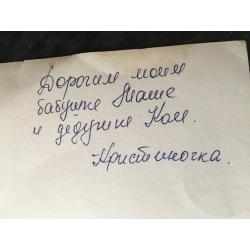 Дорогим моим
бабушке Наше
и дедушке Кол.
Кристиночка.